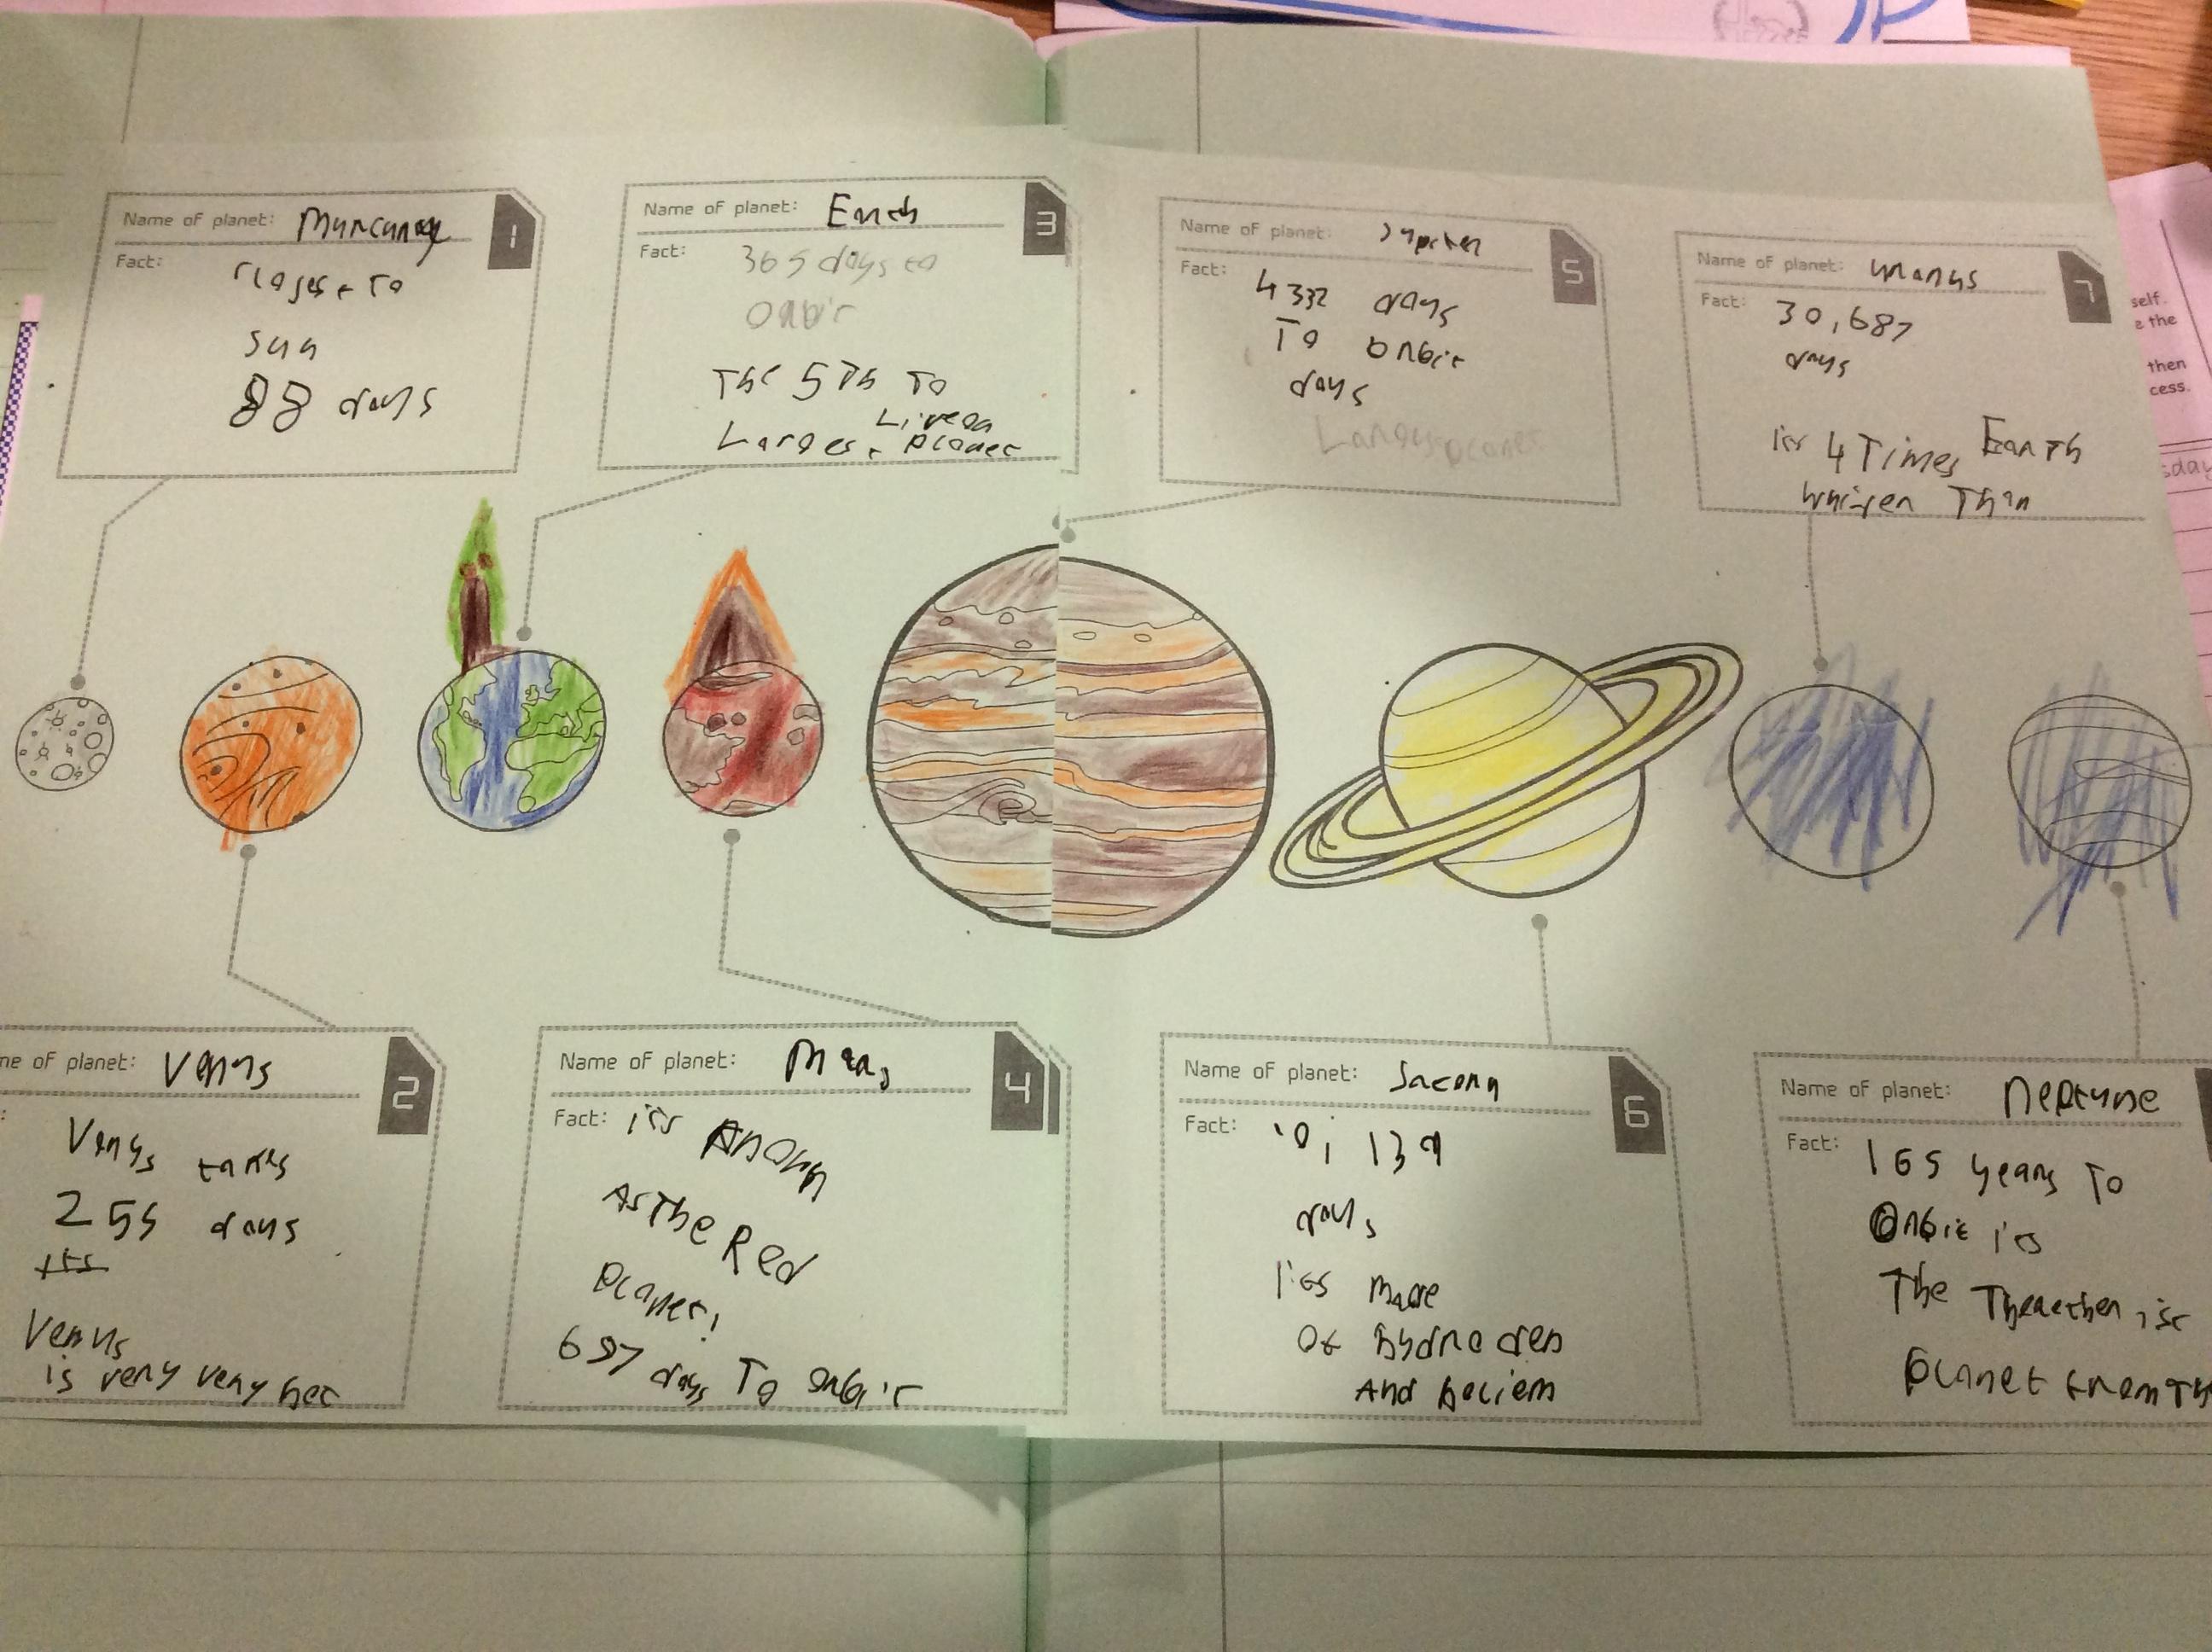 Name of planet: Muncuney 1
Fact: Closest To
Sun
88 days
Name of planet: Earth 3
Fact: 365 days to
orbit
The 5Th To
Live on
Largest planet
Name of planet: Jupiter 5
Fact: 4332 days
To orbit
days
Largest planet
Name of planet: uranus 7
Fact: 30,687
days
its 4 Times Earth
Whider Than
me of planet: Venus 2
Venus takes
255 days
its
Venus
is very very hot
Name of planet: Mars 4
Fact: it's known
As The Red
Planet!
697 days To orbit
Name of planet: Saturn 6
Fact: 139
days
its made
Of hydrogen
And heliem
Name of planet: Neptune
Fact: 165 years To
Orbit its
The
Planet from Th
self.
e the
then
cess.
sday